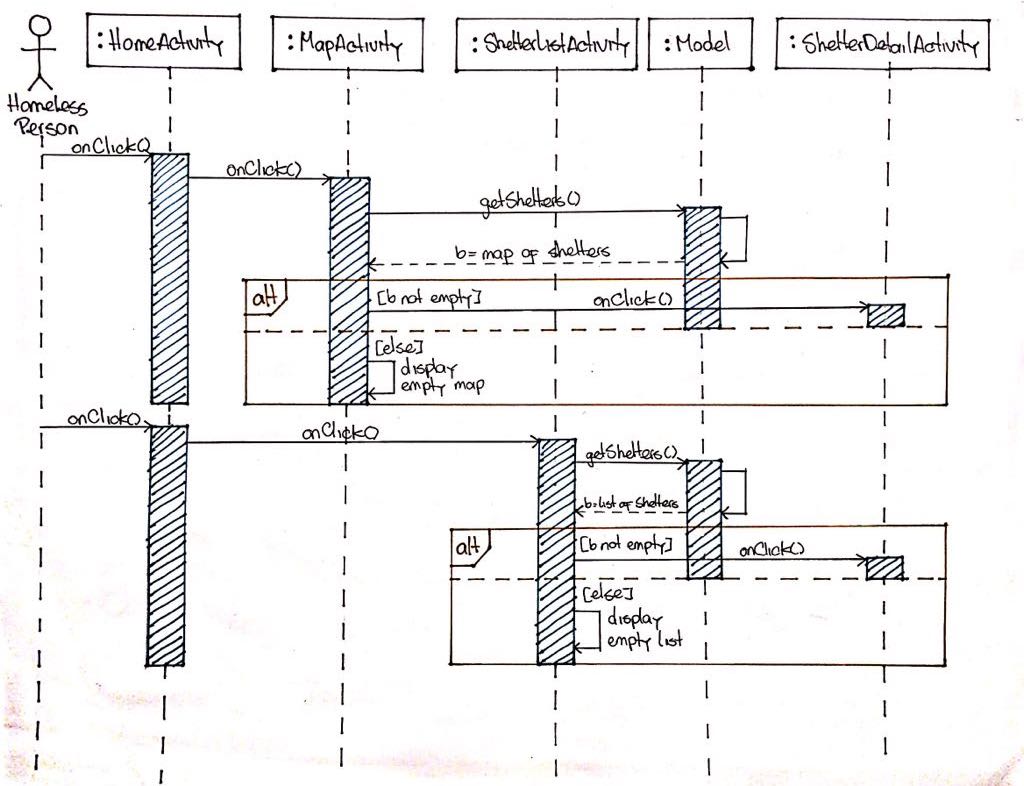 :HomeActivity
:MapActivity
:ShelterListActivity
:Model
:ShelterDetailActivity
Homeless
Person
onClick()
onClick()
getShelters()
b= map of shelters
alt
[b not empty]
onClick()
[else]
display
empty map
onClick()
onClick()
getShelters()
b=list of shelters
alt
[b not empty]
onClick()
[else]
display
empty list